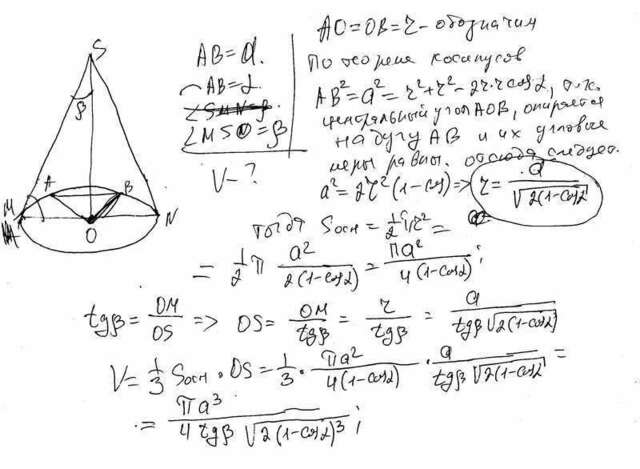 S
β
A
B
M
N
O
AB = a.
◡AB = α.
∠MSO = β
V - ?
AO = OB = r - обозначим
По теореме косинусов
AB² = a² = r² + r² - 2r·r cosα, т.к.
центральный угол AOB, опирается
на дугу AB и их угловые
меры равны. отсюда следует.
a² = 2r²(1-cosα) => r = a/√(2(1-cosα))
тогда Sосн = 1/2 πr² =
= 1/2 π a²/(2(1-cosα)) = πa²/(4(1-cosα));
tgβ = OM/OS => OS = OM/tgβ = r/tgβ = a/(tgβ √(2(1-cosα)))
V = 1/3 Sосн · OS = 1/3 · πa²/(4(1-cosα)) · a/(tgβ √(2(1-cosα))) =
= πa³/(4 tgβ √(2(1-cosα)³));